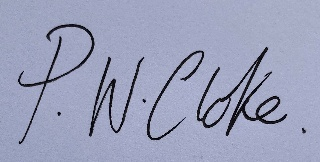 P. W. Cloke.